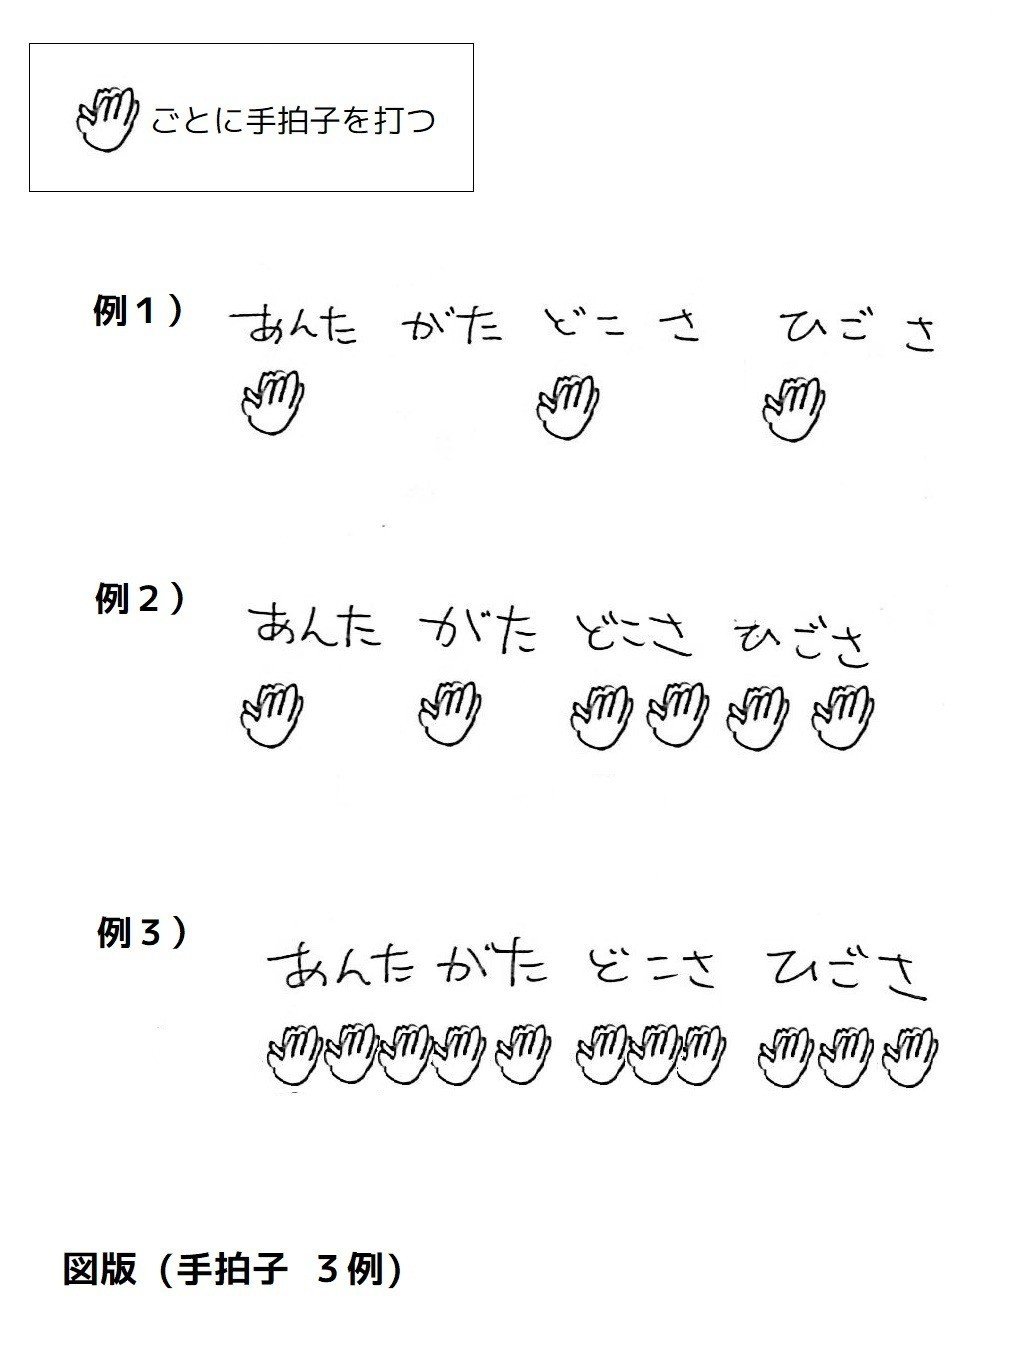 ごとに手拍子を打つ
例１） あんた がた どこ さ ひご さ
例２） あんた がた どこさ ひごさ
例３） あんた がた どこさ ひごさ
図版（手拍子 ３例）